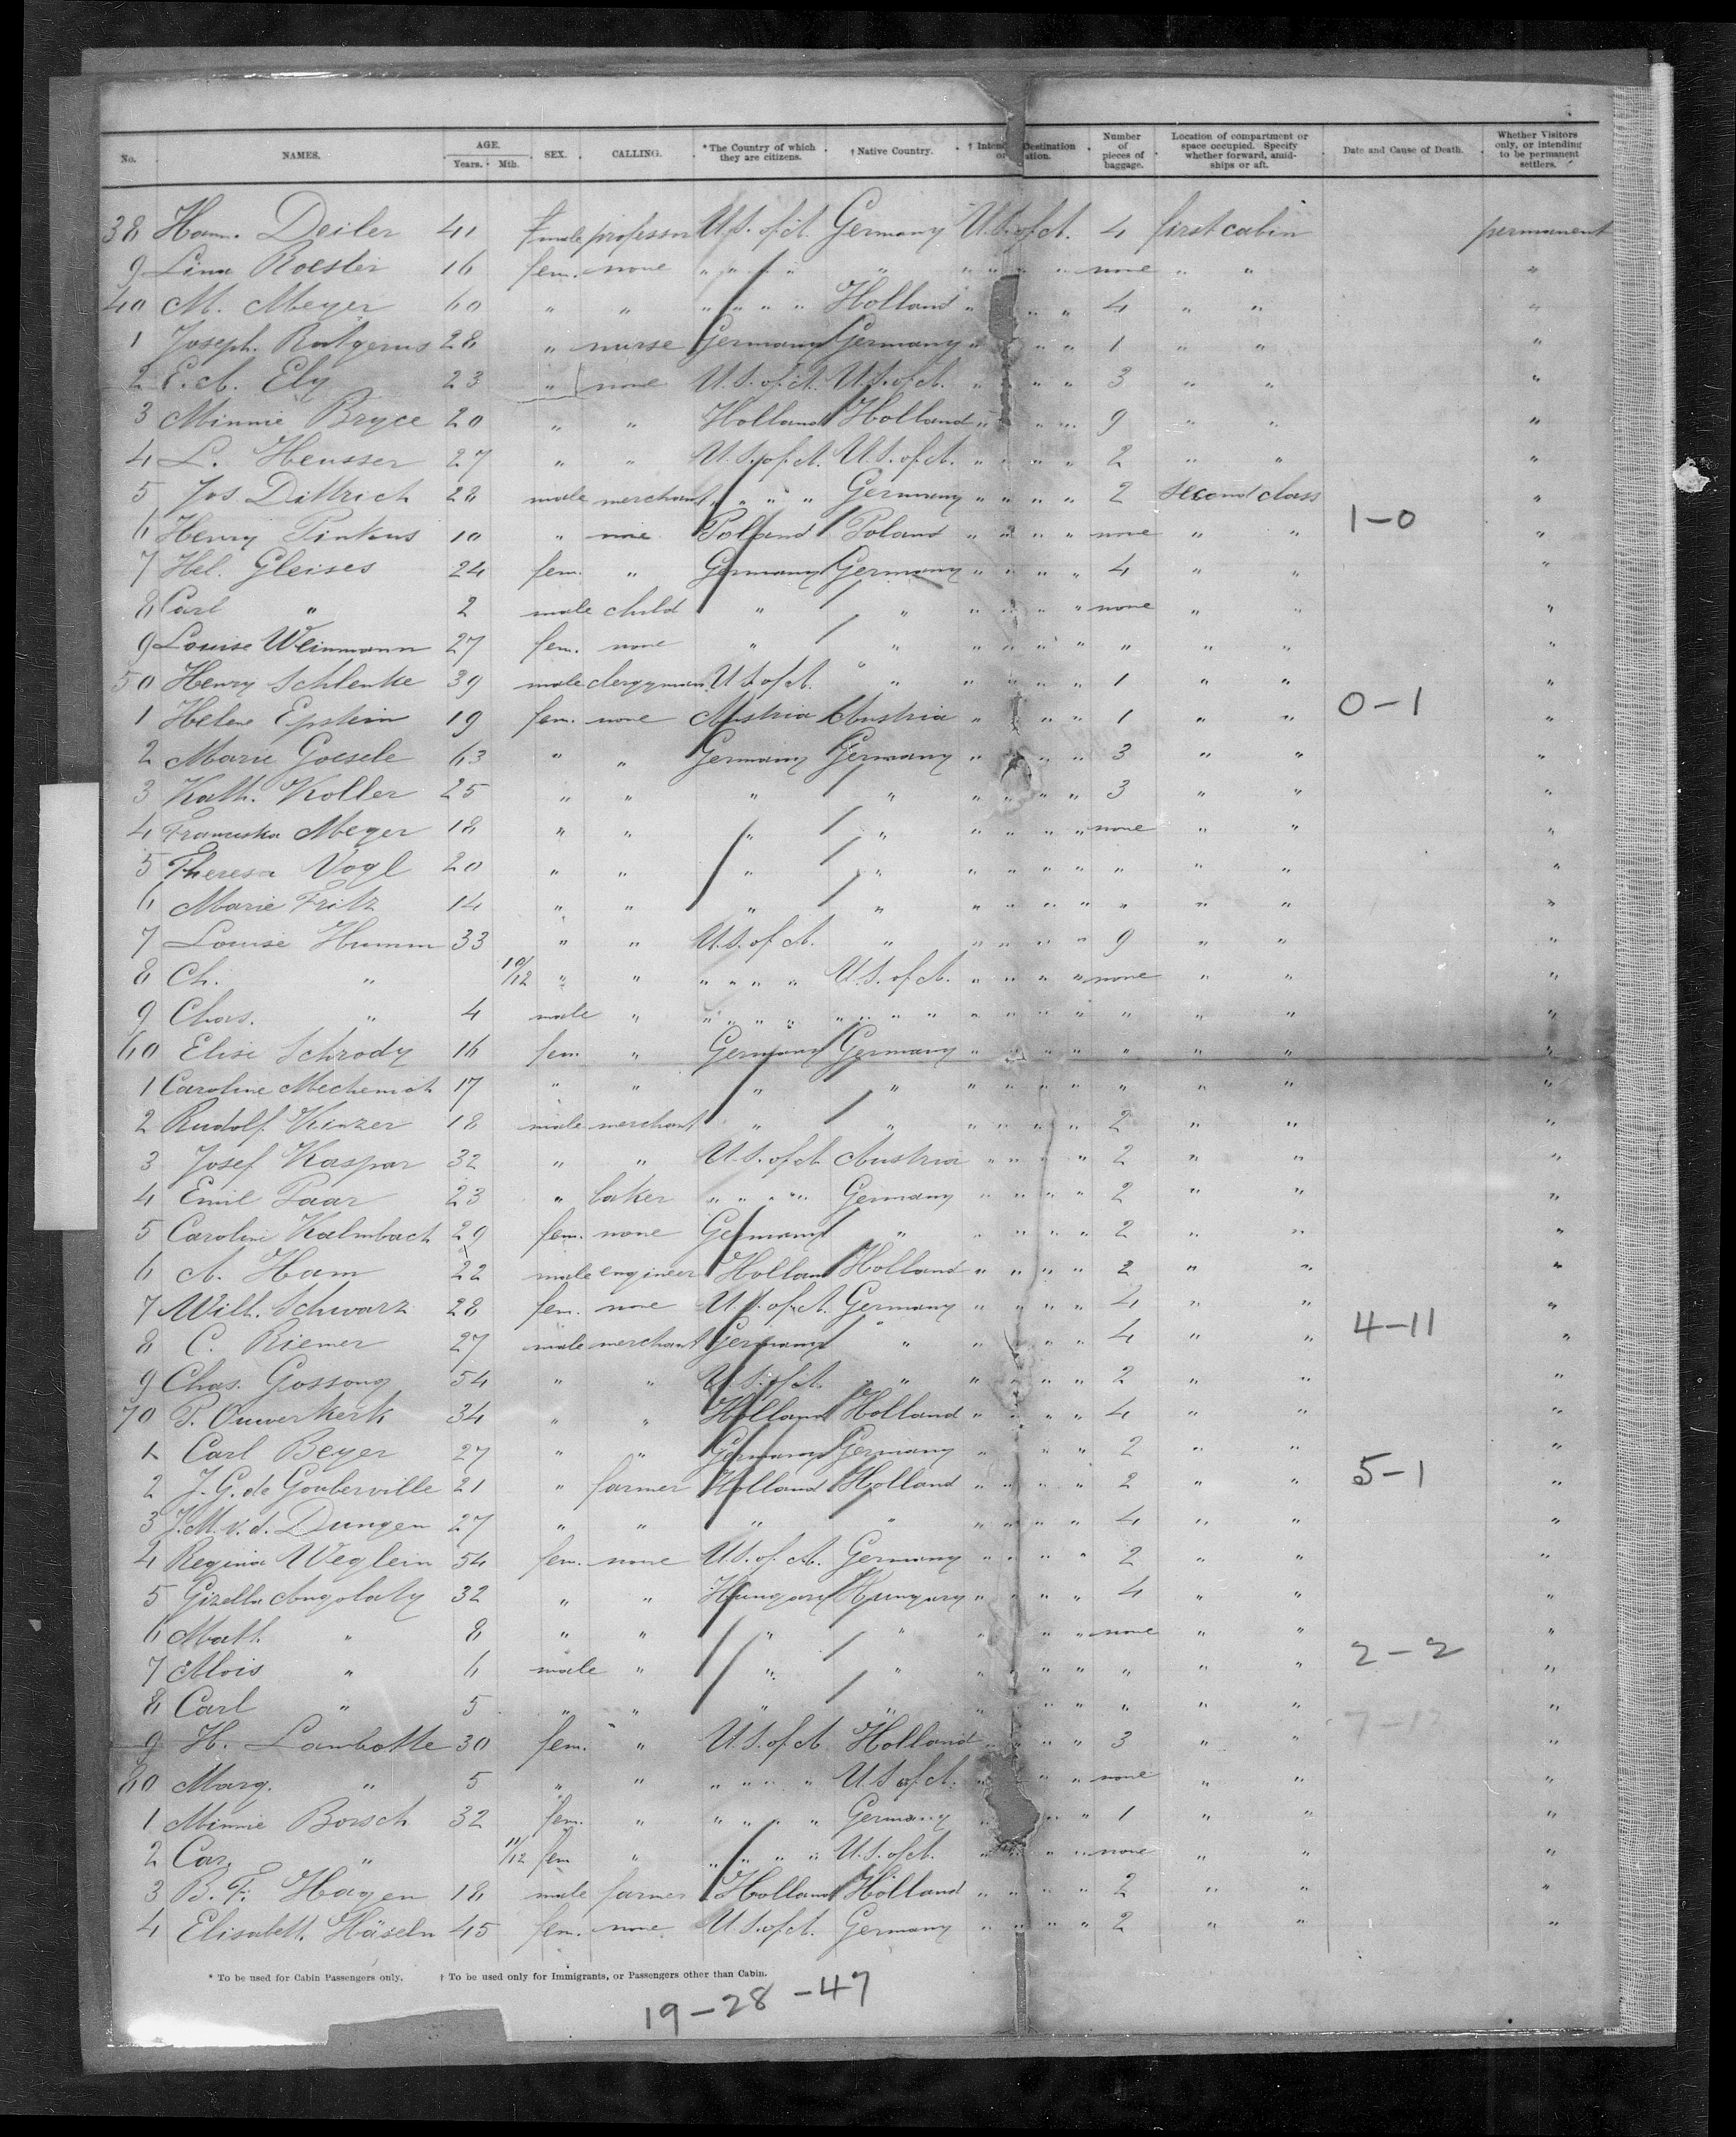 No. NAMES. AGE. Years. Mth. SEX. CALLING. *The Country of which they are citizens. † Native Country. † Intended Destination or Location. Number of pieces of baggage. Location of compartment or space occupied. Specify whether forward, amidships or aft. Date and Cause of Death. Whether Visitors only, or intending to be permanent settlers.
38 Deiler 41 male professor U.S. of A. Germany U.S. of A. 4 first cabin permanent
9 Lina Roesler 16 fem. none " " " " " " " " " none " " "
40 M. Meyer 60 " " " " " " Holland " " " 4 " " "
1 Joseph. Rutgerus 28 " nurse Germany Germany " " " 1 " " "
2 E. A. Ely 23 " none U.S. of A. U.S. of A. " " " " 3 " " "
3 Minnie Bryce 20 " " Holland Holland " " " 9 " " "
4 L. Heusser 27 " " U.S. of A. U.S. of A. " " " " 2 " " "
5 Jos Dittrich 28 male merchant " " " " Germany " " " " 2 second class "
6 Henry Pinkus 10 " none Polland Poland " " " " none " " " 1-0
7 Hel. Gleises 24 fem. " Germany Germany " " " " 4 " " "
8 Carl " 2 male child " " " " " " none " " "
9 Louise Weinmann 27 fem. none " " " " " " " " " "
50 Henry Schlenke 39 male clergyman U.S. of A. " " " " " 1 " " "
1 Helene Epstein 19 fem. none Austria Austria " " " " 1 " " 0-1 "
2 Marie Goesele 63 " " Germany Germany " " " 3 " " "
3 Kath. Koller 25 " " " " " " " " 3 " " "
4 Franziska Meyer 18 " " " " " " " " none " " "
5 Theresa Vogl 20 " " " " " " " " " " " "
6 Marie Fritz 14 " " " " " " " " " " " "
7 Louise Humm 33 " " U.S. of A. " " " " " 9 " " "
8 Ch. " 10/12 " " " " " " U.S. of A. " " " " none " " "
9 Chas. " 4 male " " " " " " " " " " " " " " " " "
60 Elise Schrody 16 fem " Germany Germany " " " " " " " "
1 Caroline 17 " " " " " " " " " " " "
2 Rudolf Kinzer 18 male merchant " " " " " " 2 " " "
3 Josef Kaspar 32 " " U.S. of A. Austria " " " " 2 " " "
4 Emil Paar 23 " baker " " " " Germany " " " " 2 " " "
5 Caroline Kalmbach 29 fem. none Germany " " " " " 2 " " "
6 A. Ham 22 male engineer Holland Holland " " " " 2 " " "
7 Wilh. Schwarz 28 fem. none U.S. of A. Germany " " " " 4 " " "
8 C. Riemer 27 male merchant Germany " " " " " 4 " " 4-11 "
9 Chas. Gossong 54 " " U.S. of A. " " " " " 2 " " "
70 P. Ouwerkerk 34 " " Holland Holland " " " " 4 " " "
1 Carl Beyer 27 " " Germany Germany " " " 2 " " "
2 J. G. de Gouberville 21 " farmer Holland Holland " " " " 2 " " 5-1 "
3 J. M. v. d. Dungen 27 " " " " " " " " 4 " " "
4 Regina Weglein 54 fem. none U.S. of A. Germany " " " " 2 " " "
5 Gizella 32 " " Hungary Hungary " " " " 4 " " "
6 Math. " 8 " " " " " " " none " " "
7 Alois " 6 male " " " " " " " " " 2-2 "
8 Carl " 5 " " " " " " " " " " "
9 H. Lambotte 30 fem. " U.S. of A. Holland " " " " 3 " " 7-12 "
80 Marg. " 5 " " " " " " U.S. of A. " " " none " " "
1 Minnie Borsch 32 fem. " " " " " Germany " " " 1 " " "
2 Car. " 11/12 fem " " " " " U.S. of A. " " " none " " "
3 B. F. Hagen 18 male farmer Holland Holland " " " " 2 " " "
4 Elisabeth. Häseln 45 fem. none U.S. of A. Germany " " " " 2 " " "
* To be used for Cabin Passengers only. † To be used only for Immigrants, or Passengers other than Cabin.
19-28-47